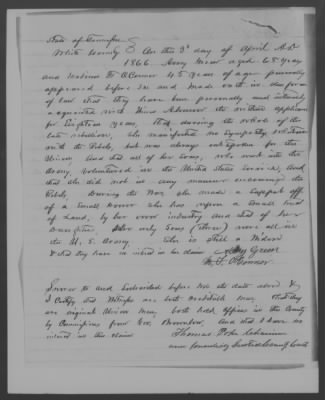 State of Tennessee
White County } On this 3d day of April A.D.
1866 Avery Green aged 65 years
and F. O'Connor 45 years of age personally
appeared before me and made oath in due form
of law that they have been personally and intimately
acquainted with the within applicant
for Eighteen years, That during the whole of the
late rebellion, She manifested no Sympathy whatever
with the Rebels, but was always outspoken for the
Union, And that all of her Sons, who went into the
Army Volunteered in the United States Service, And
that she did not in any manner encourage the
Rebels, During the War, she made a support off
of a Small Dower she has upon a Small tract
of Land, by her own industry and that of her
daughters, Her only Sons (three) were all in
the U. S. Army. She is still a Widow
& that they have no interest in her claim Avery Green
F. O'Connor
Sworn to and Subscribed before me the date above &
I Certify that Witnesses are both Credible men, that they
are original Union men, both hold offices in this County
by Commissions from Gov. Brownlow, and that I have no
interest in this claim Thomas